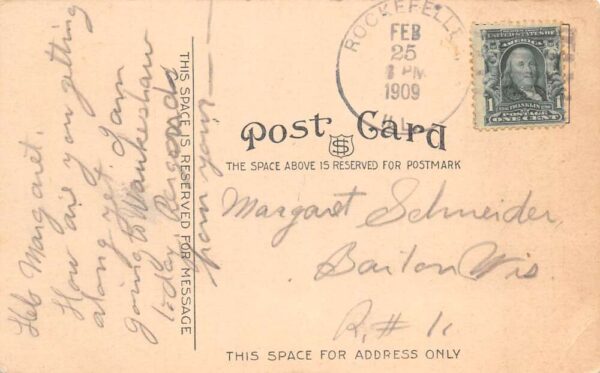 Hello Margaret.
How are you getting
along yet. I am
going to Waukeshaw
to day
from your
THIS SPACE IS RESERVED FOR MESSAGE
ROCKEFELLE
FEB
25
PM
1909
ILL.
UNITED STATES OF AMERICA
1 1
FRANKLIN
POSTAGE
ONE CENT
Post Card
THE SPACE ABOVE IS RESERVED FOR POSTMARK
Margaret Schneider,
Barton Wis.
R. # 1.
THIS SPACE FOR ADDRESS ONLY